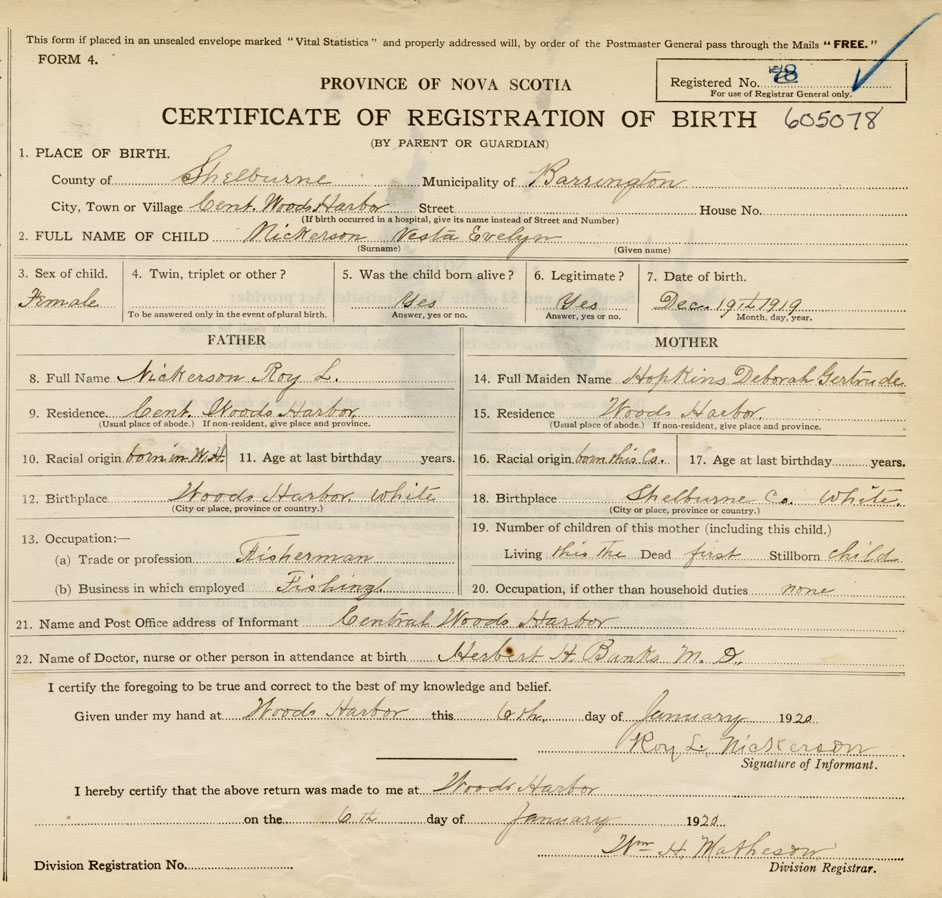 This form if placed in an unsealed envelope marked "Vital Statistics" and properly addressed will, by order of the Postmaster General pass through the Mails "FREE."
FORM 4.
Registered No. 78
For use of Registrar General only.
PROVINCE OF NOVA SCOTIA
CERTIFICATE OF REGISTRATION OF BIRTH 605078
(BY PARENT OR GUARDIAN)
1. PLACE OF BIRTH.
County of Shelburne Municipality of Barrington
City, Town or Village Cent. Woods Harbor Street House No.
(If birth occurred in a hospital, give its name instead of Street and Number)
2. FULL NAME OF CHILD Nickerson Vesta Evelyn
(Surname) (Given name)
3. Sex of child. 4. Twin, triplet or other? 5. Was the child born alive? 6. Legitimate? 7. Date of birth.
Female Yes Yes Dec. 19th 1919
To be answered only in the event of plural birth. Answer, yes or no. Answer, yes or no. Month, day, year.
FATHER
8. Full Name Nickerson Roy L.
9. Residence. Cent. Woods Harbor
(Usual place of abode.) If non-resident, give place and province.
10. Racial origin born in W.H. 11. Age at last birthday years.
12. Birthplace Woods Harbor. White
(City or place, province or country.)
13. Occupation:—
(a) Trade or profession Fisherman
(b) Business in which employed Fishing.
MOTHER
14. Full Maiden Name Hopkins Deborah Gertrude
15. Residence Woods Harbor.
(Usual place of abode.) If non-resident, give place and province.
16. Racial origin born this Co. 17. Age at last birthday years.
18. Birthplace Shelburne Co. White.
(City or place, province or country.)
19. Number of children of this mother (including this child.)
Living this the Dead first Stillborn child
20. Occupation, if other than household duties none
21. Name and Post Office address of Informant Central Woods Harbor
22. Name of Doctor, nurse or other person in attendance at birth Herbert H. Banks M. D.
I certify the foregoing to be true and correct to the best of my knowledge and belief.
Given under my hand at Woods Harbor this 6th day of January 1920
Roy L. Nickerson
Signature of Informant.
I hereby certify that the above return was made to me at Woods Harbor
on the 6th day of January 1920
Wm H. Matheson
Division Registration No. Division Registrar.